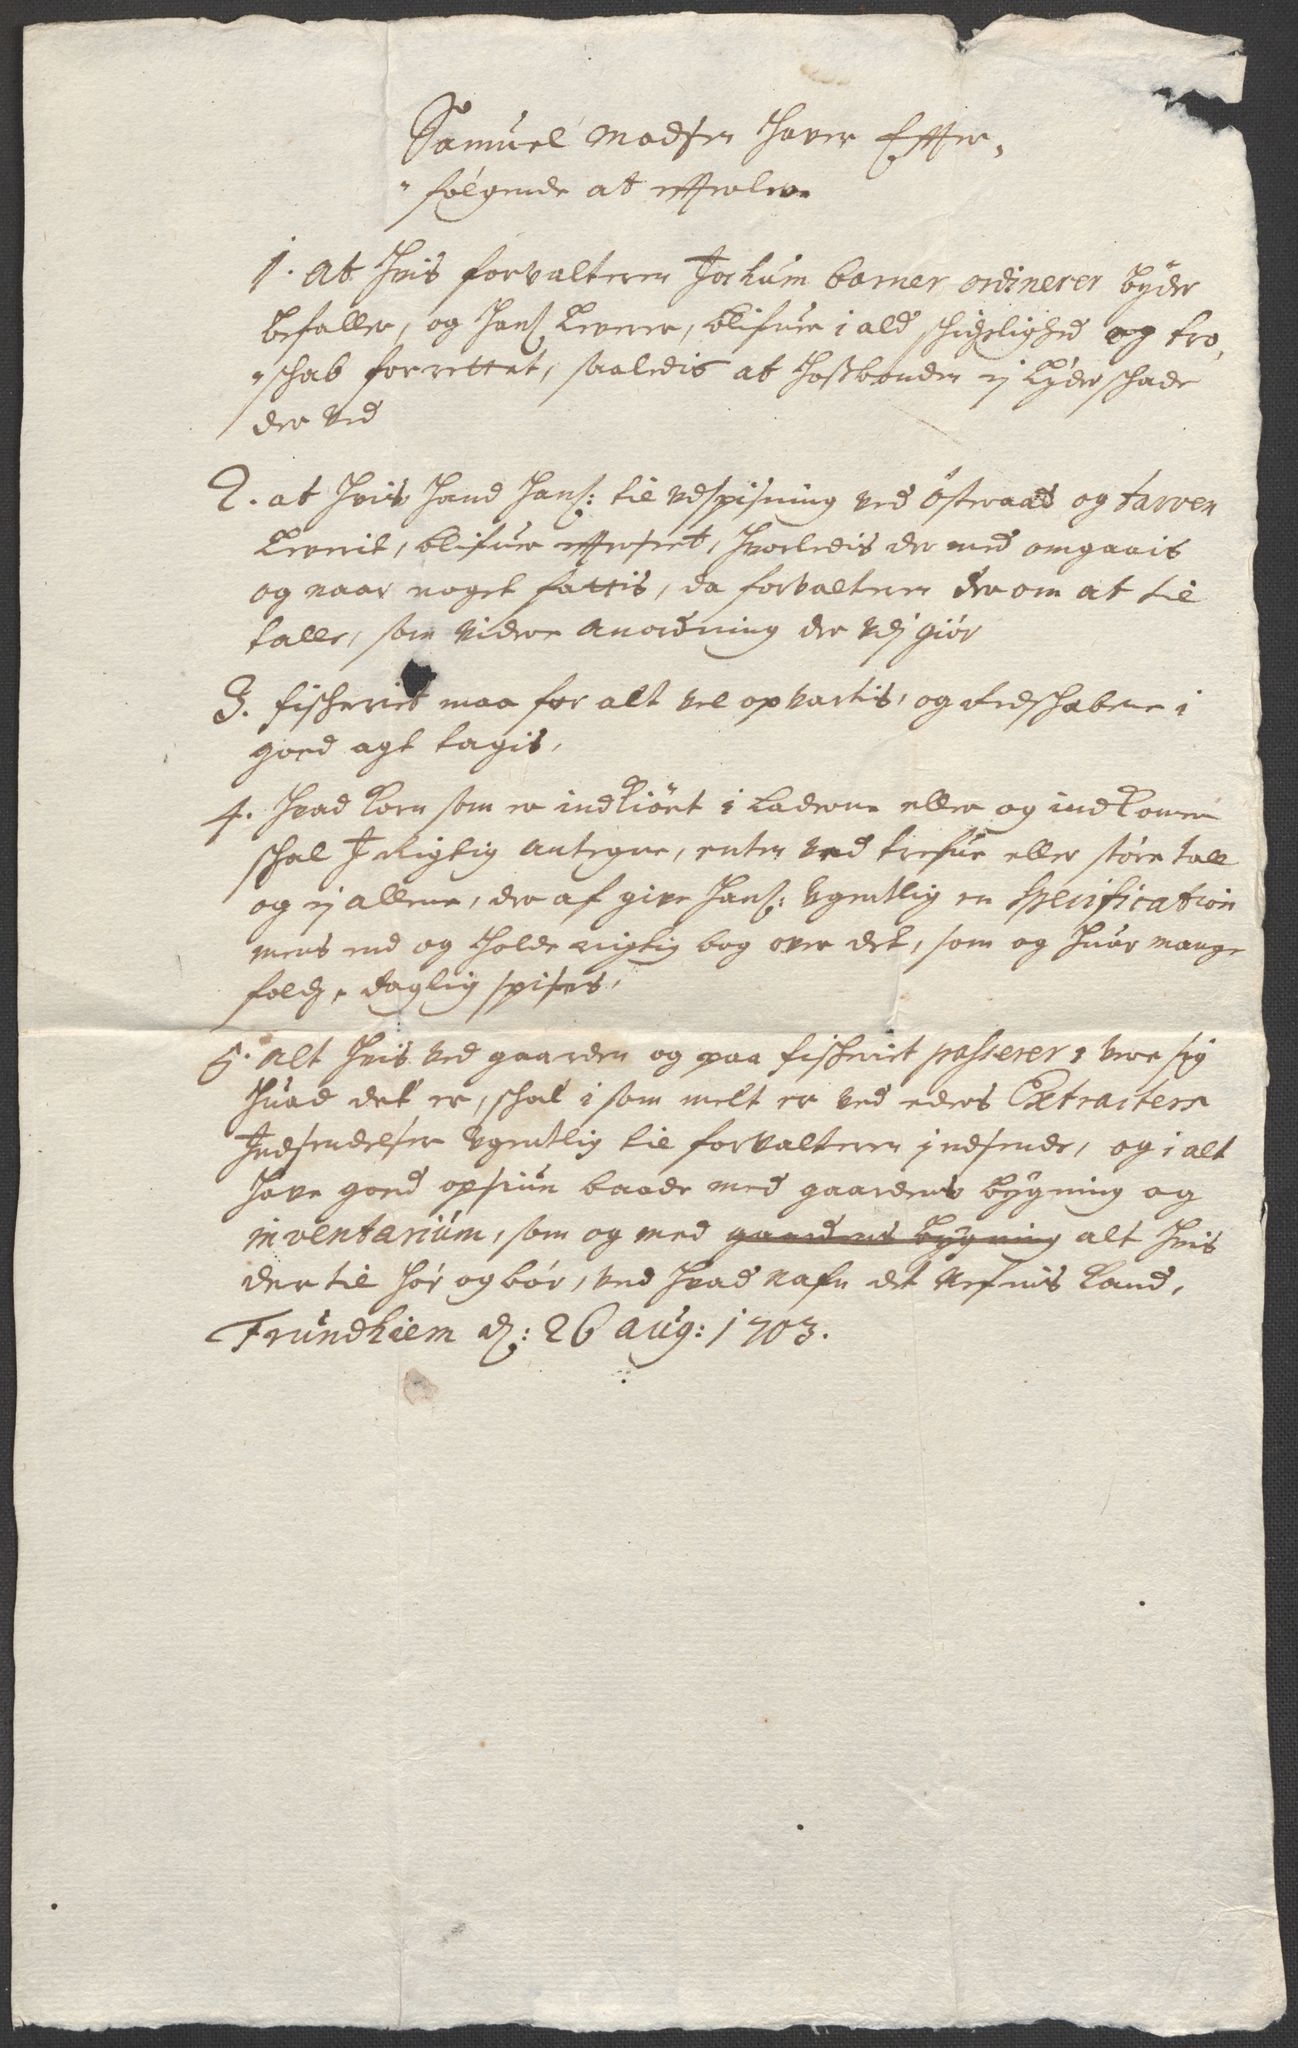 Samuel Madsen hafver Effter,
"følgende at effterleve
1. At hvis forvalteren Jochum barner ordinerer byder
befaller, og hans Leverer, blifuer i ald schichelighed og tro,
"schab forrettet, saaledis at hosbonden ej Lyder schade
der ved
2. at hvis hand hans: til udspisning ved Østeraad og tarven
Leverit, blifuer efterseet, hvorledis der med omgaais
og naar noget fattis, da forvalteren der om at til
talle, som videre anordning der udj giør
3. fischeriet maa for alt vel opvartis, og redschaberne i
goed agt tagis,
4. hvad Korn som er indkiørt i Laderne eller og indkomer
schal I Rigtig antegne, enten ved trefue eller støre tall
og ej allene, der af give hans: Ugentlig en Specification
mens end og holde rigtig bog over det, som og huor mange
folch, daglig spises,
5. alt hvis ved gaarden og paa fischeriet passerer, vere sig
huad det er, schal i som melt er ved eders Extracters
Indsendelser Ugentlig til forvalteren indsende, og i alt
have goed opsiun baade med gaardens bygning og
inventarium, som og med gaardens bygning alt hvis
der til hør og bør, ved hvad nafn det nefnis kand,
Trundhiem d: 26 aug: 1703.